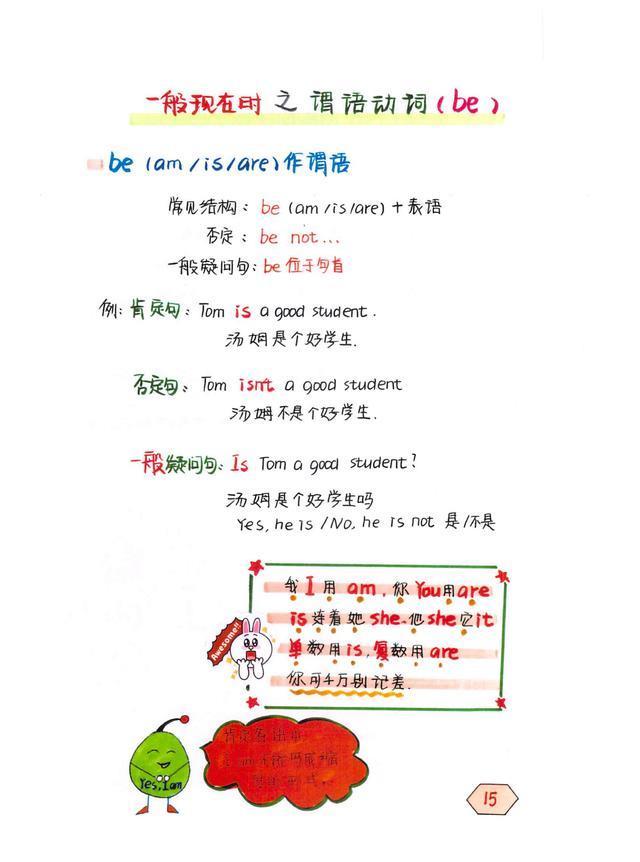 一般现在时之谓语动词(be)
be (am/is/are)作谓语
常见结构: be (am/is/are)+表语
否定: be not...
一般疑问句: be 位于句首
例: 肯定句: Tom is a good student.
汤姆是个好学生.
否定句: Tom isn't a good student
汤姆不是个好学生.
一般疑问句: Is Tom a good student?
汤姆是个好学生吗
Yes, he is /No, he is not 是/不是
我 I 用 am, 你 You用are
is 连着她 she. 他 she 它 it
单数用 is, 复数用 are
你可千万别记差.
Awesome!!
肯定
Yes, I am
15